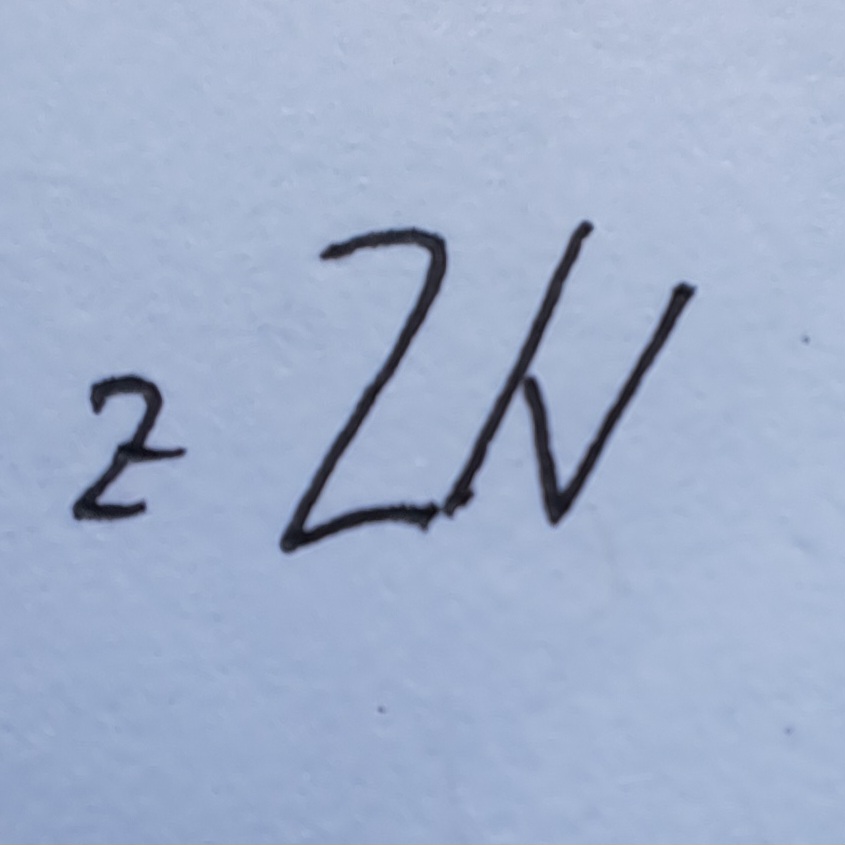 z ZN